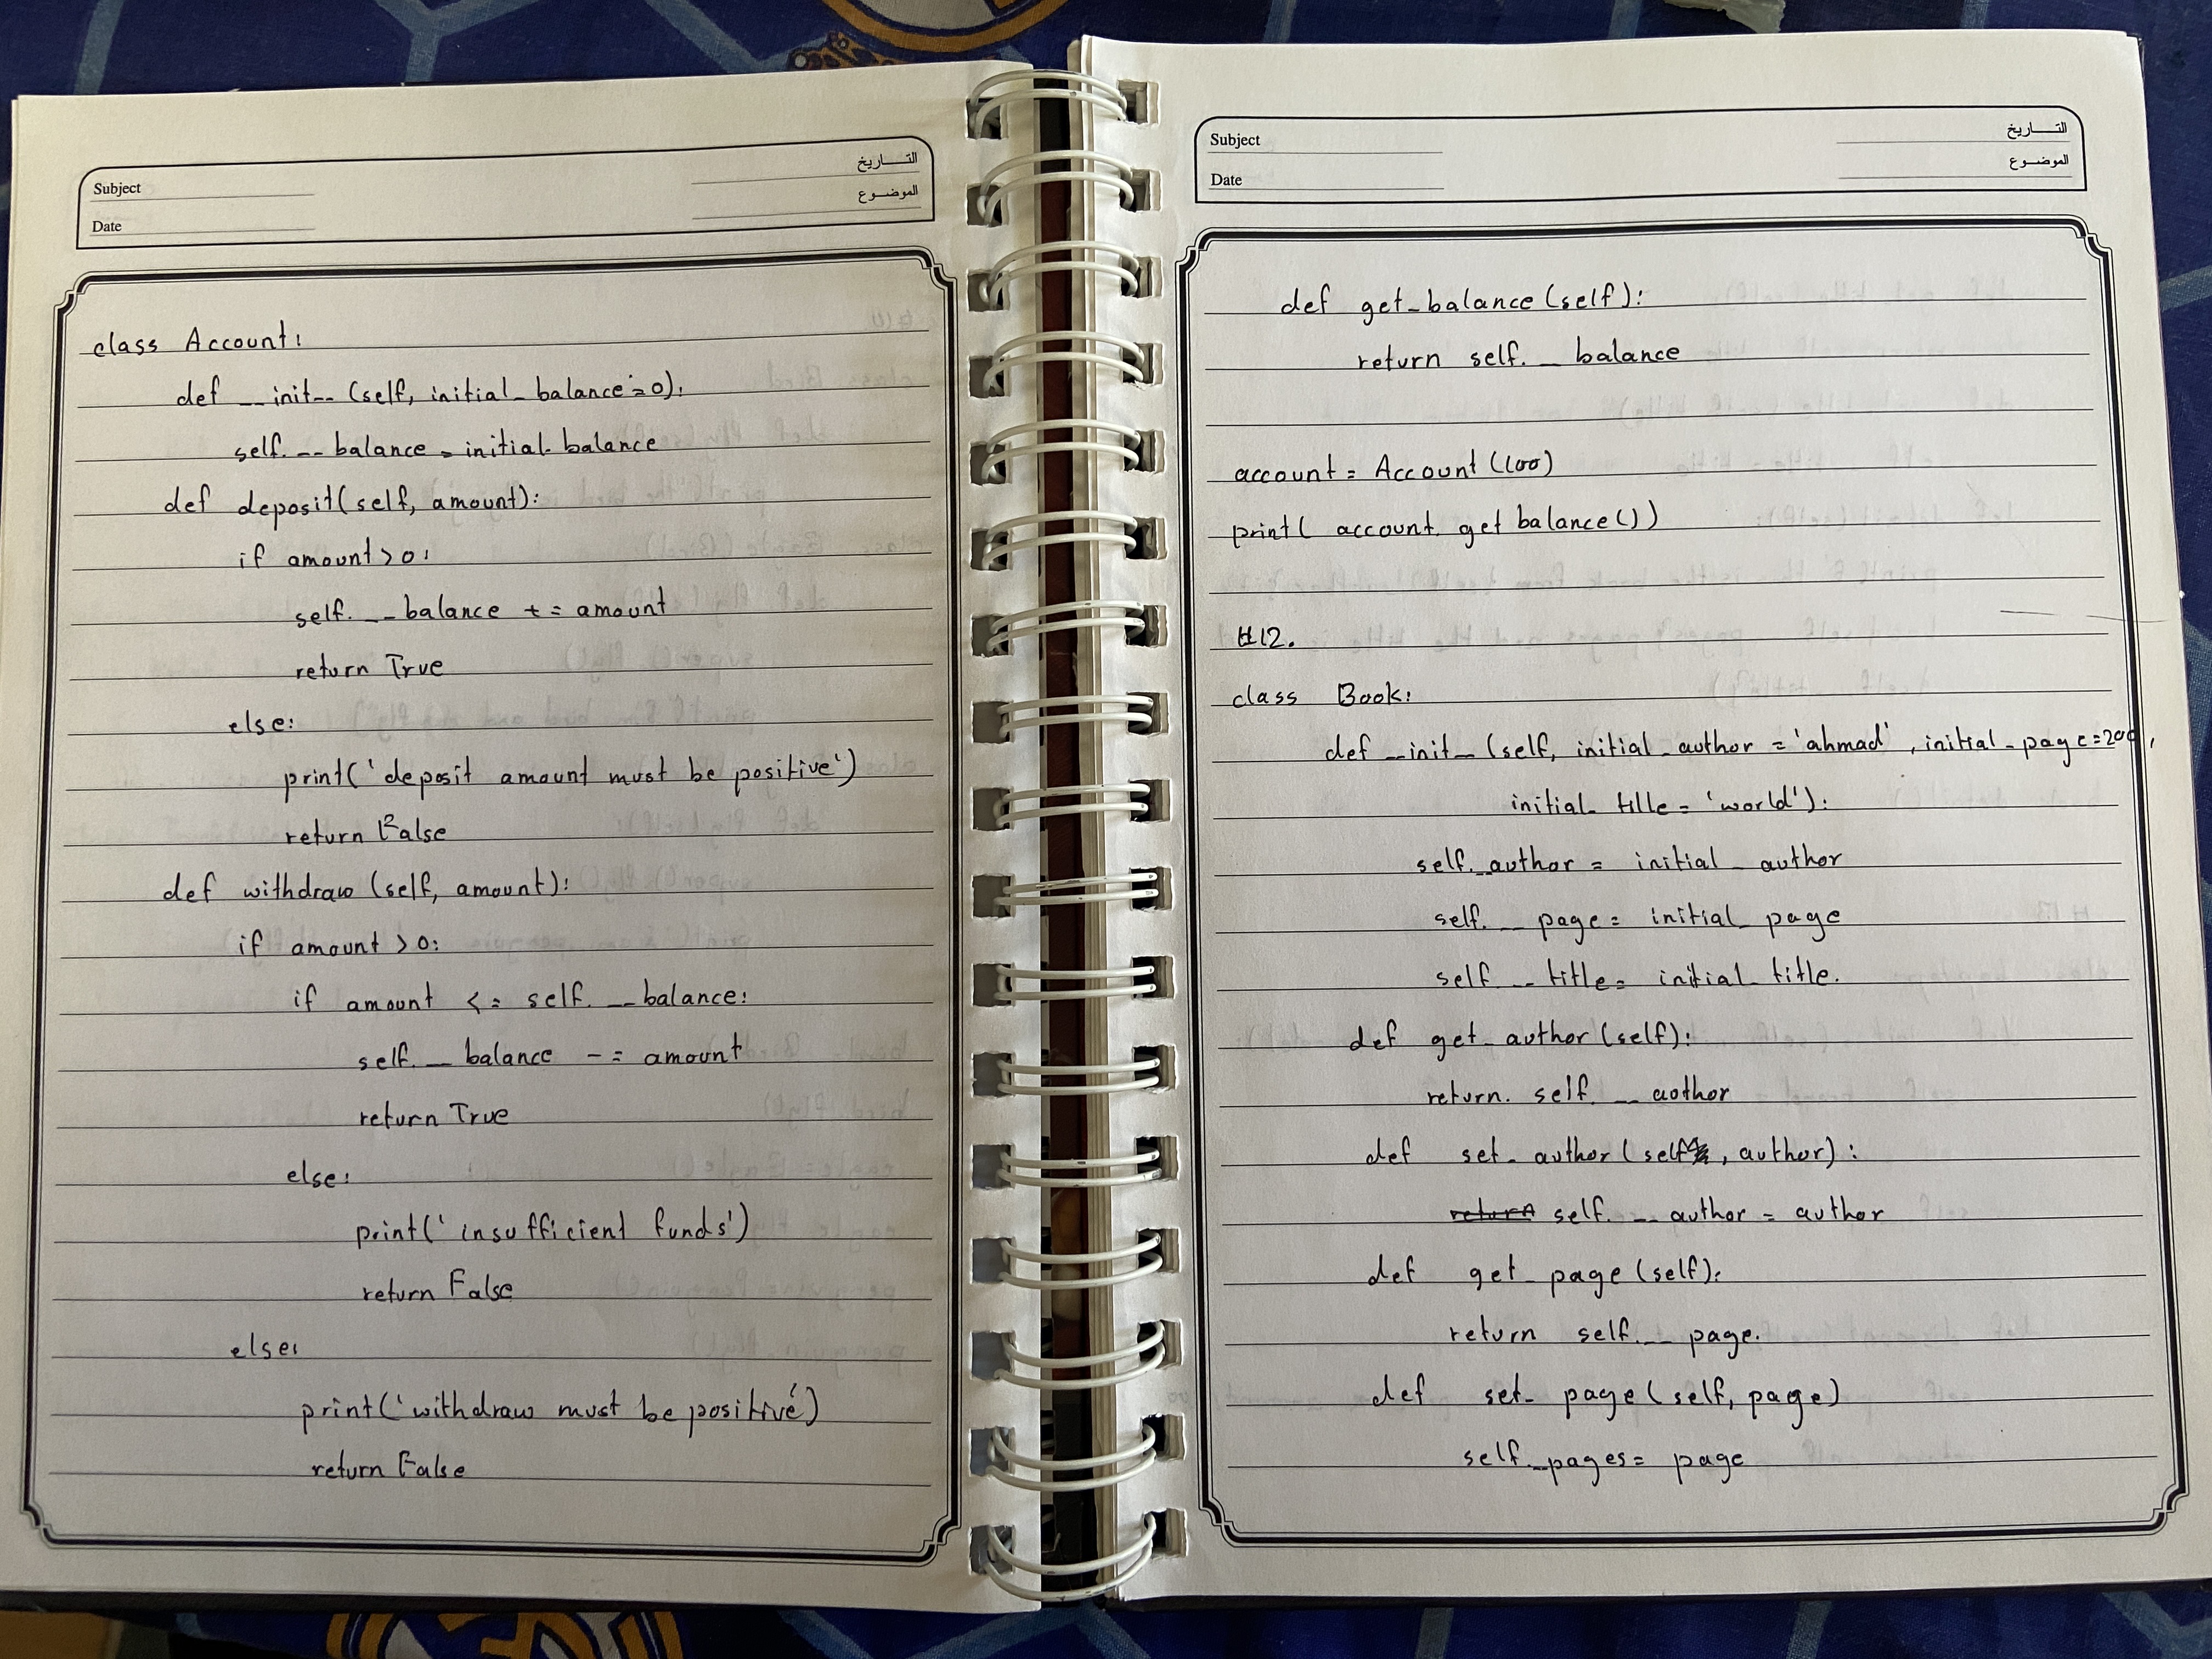 Subject
Date
التـــاريخ
الموضـــوع
class Account:
def __init__(self, initial_balance=0):
self.__balance = initial_balance
def deposit(self, amount):
if amount > 0:
self.__balance += amount
return True
else:
print('deposit amount must be positive')
return False
def withdraw (self, amount):
if amount > 0:
if amount <= self.__balance:
self.__balance -= amount
return True
else:
print('insufficient funds')
return False
else:
print('withdraw must be positive')
return False
Subject
Date
التـــاريخ
الموضـــوع
def get_balance(self):
return self.__balance
account = Account(100)
print( account. get balance())
#12.
class Book:
def __init__(self, initial_author = 'ahmad', initial_page=200,
initial_title = 'world'):
self._author = initial_author
self.__page = initial_page
self.__title = initial_title.
def get_author (self):
return. self.__author
def set_author (self, author):
return self.__author = author
def get_page (self):
return self.__page.
def set_page (self, page)
self.__pages = page